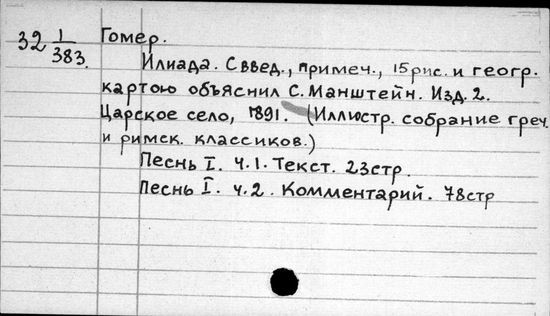 32 1/383. Гомер.
Илиада. С введ., примеч., 15 рис. и геогр.
картою объяснил С. Манштейн. Изд. 2.
Царское село, 1891. (Иллюстр. собрание греч.
и римск. классиков.)
Песнь I. ч. 1. Текст. 23стр.
Песнь I. ч. 2. Комментарий. 78стр